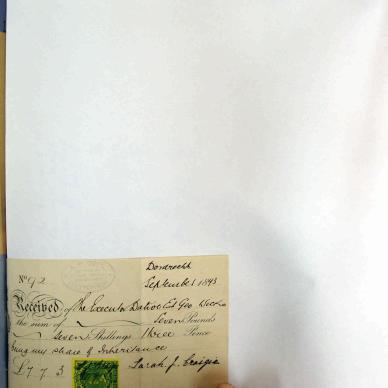 Dordrecht
No 92 September 1893
Received of the Executor Dative Est Geo
the sum of Seven Pounds
Seven Shillings three Pence
being my share of Inheritance
£7 7 3 Sarah J.